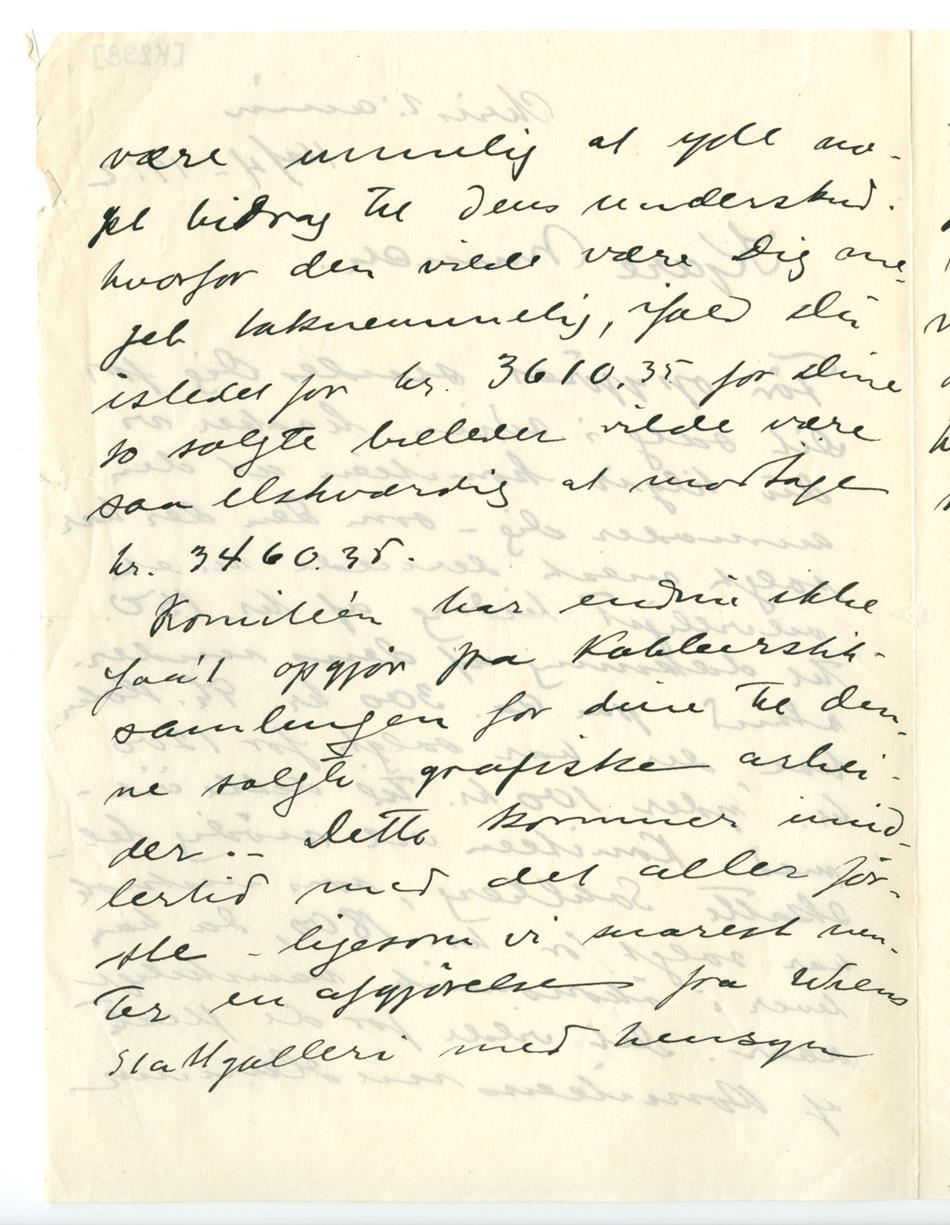 være umulig at yde no-
get bidrag til dens underskud.
hvorfor den vilde være Dig me-
get taknemmelig, ifald Du
istedet for kr. 3610.35 for Dine
10 solgte billeder vilde være
saa elskværdig at modtage
kr. 3460.35.
Komitéen har endnu ikke
faa't opgjør fra Kobberstik-
samlingen for dine til den-
ne solgte grafiske arbei-
der. - Dette kommer imid-
lertid med det aller før-
ste - ligesom vi snarest ven-
ter en afgjørelse fra Wiens
Stattgalleri med hensyn